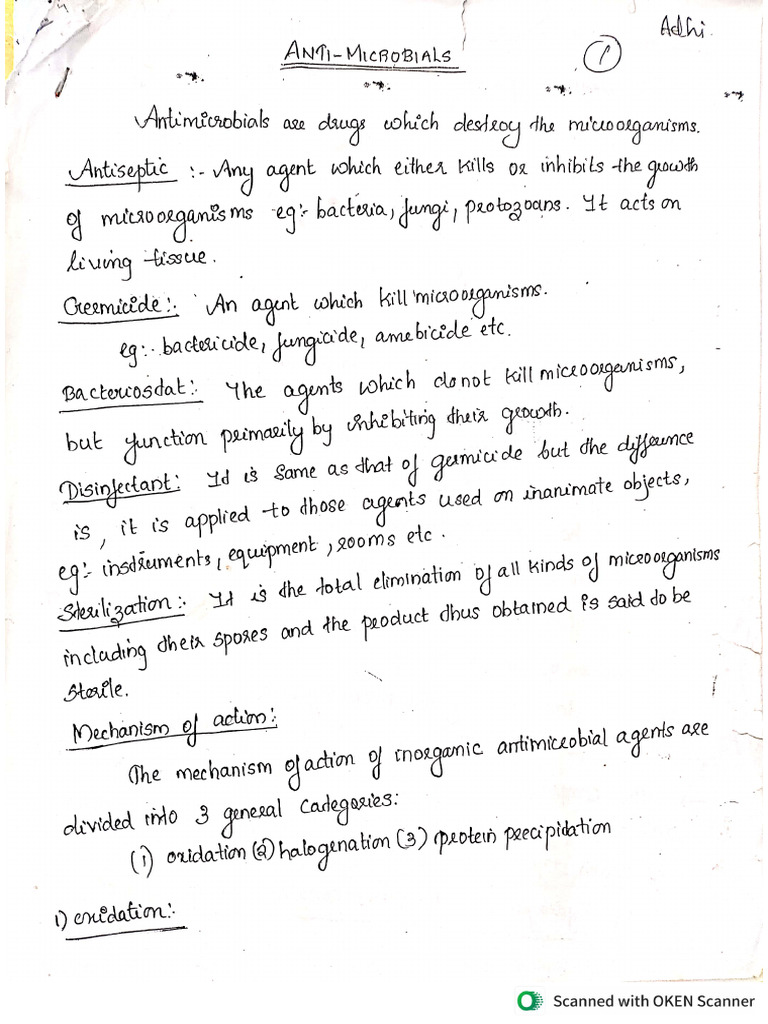 Adhi
ANTI-MICROBIALS
1
Antimicrobials are drugs which destroy the microorganisms.
Antiseptic :- Any agent which either kills or inhibits the growth
of microorganisms eg:- bacteria, fungi, protozoans. It acts on
living tissue.
Germicide:- An agent which kill microorganisms.
eg:- bactericide, fungicide, amebicide etc.
Bacteriosdat:- The agents which do not kill microorganisms,
but function primarily by inhibiting their growth.
Disinfectant: It is same as that of germicide but the difference
is, it is applied to those agents used on inanimate objects,
eg:- instruments, equipment, rooms etc.
Sterilization:- It is the total elimination of all kinds of microorganisms
including their spores and the product thus obtained is said to be
sterile.
Mechanism of action:-
The mechanism of action of inorganic antimicrobial agents are
divided into 3 general Categories:
(1) oxidation (2) halogenation (3) protein precipitation
1) oxidation:-
Scanned with OKEN Scanner